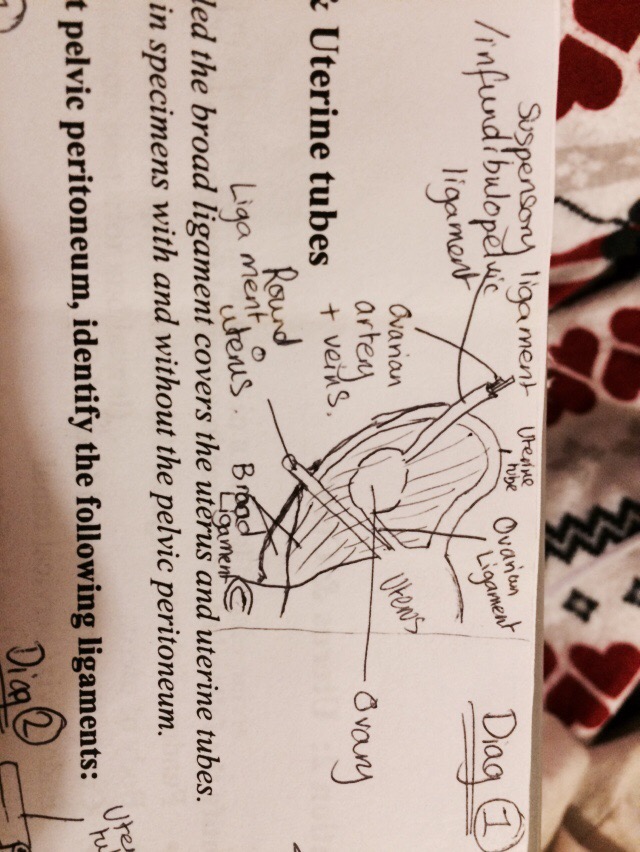 Diag 1
Suspensory ligament
/infundibulopelvic
ligament
Uterine
tube
Ovarian
Ligament
Ovarian
artery
+ veins.
Uterus
Ovary
Round
Ligament o
uterus.
Broad
Ligament
& Uterine tubes
led the broad ligament covers the uterus and uterine tubes.
in specimens with and without the pelvic peritoneum.
t pelvic peritoneum, identify the following ligaments:
Diag 2